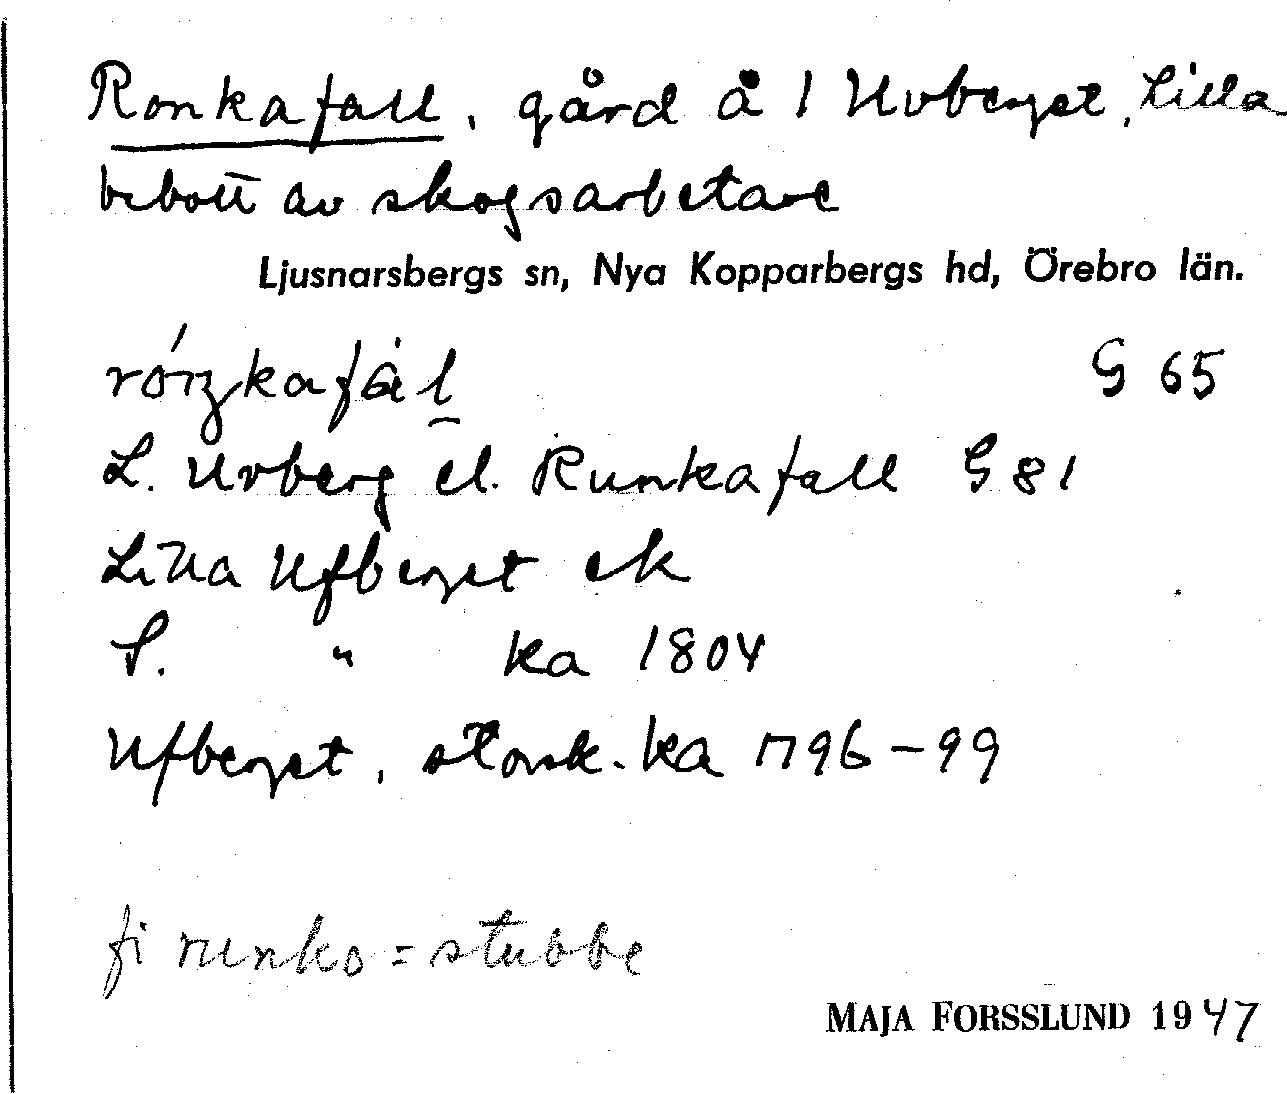 Ronkafall, gård å 1 Uvberget, Lilla
bebott av skogsarbetare
Ljusnarsbergs sn, Nya Kopparbergs hd, Örebro län.
róŋkafàl̯ G 65
L. Uvberg el. Runkafall G 81
Lilla Ufberget ek
S. " ka 1804
Ufberget, storsk. ka 1796-99
fi runko = stubbe
MAJA FORSSLUND 1947